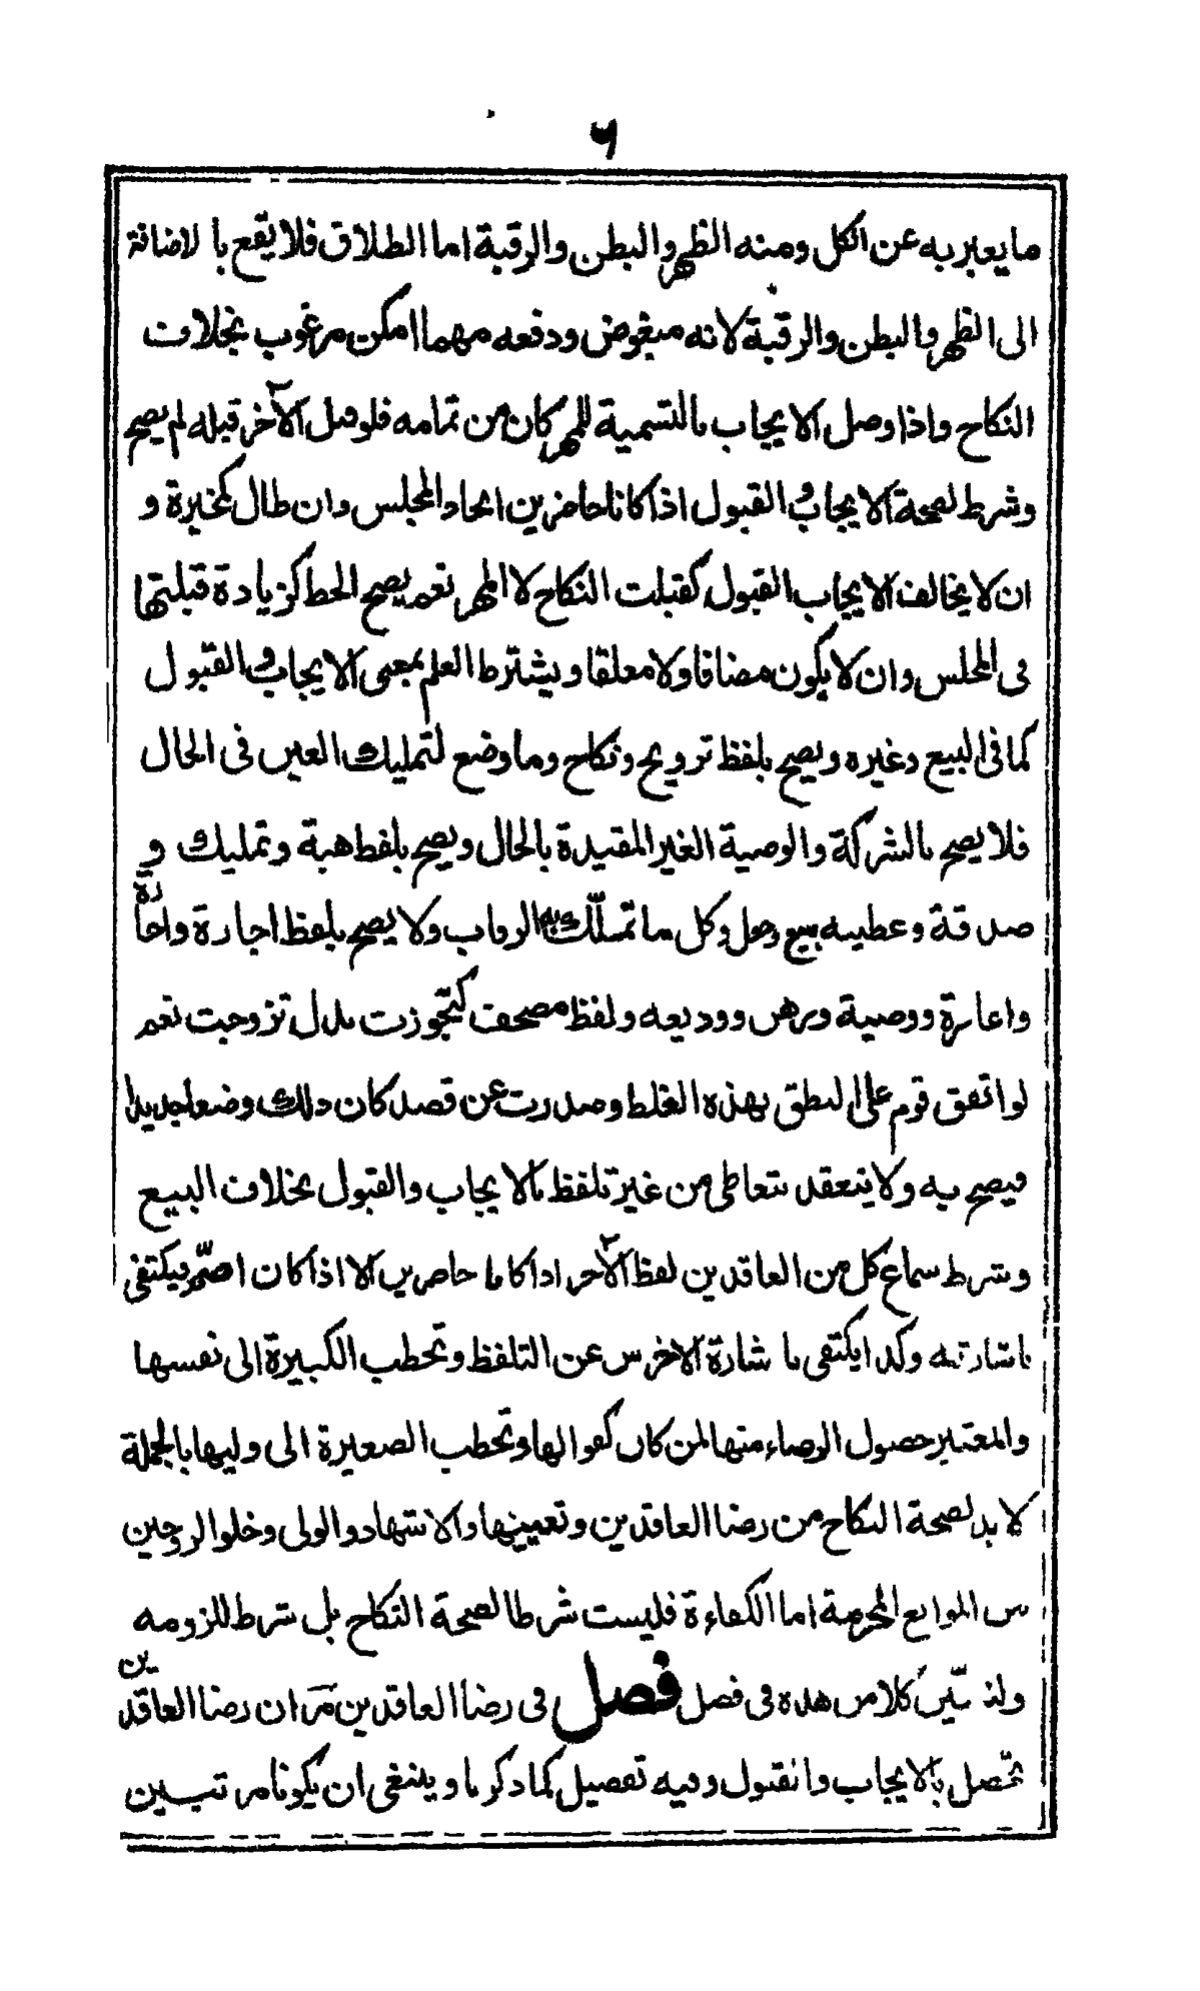 ٦
ما يعبر به عن الكل ومنه الظهر والبطن والرقبة اما الطلاق فلا يقع با لاضافة
الى الظهر والبطن والرقبة لانه مبغوض ودفعه مهما امكن مرغوب بخلاف
النكاح واذا وصل الايجاب بالتسمية للمهر كان من تمامه فلو قبل الآخر قبله لم يصح
وشرط لصحة الايجاب والقبول اذا كانا حاضرين اتحاد المجلس وان طال كمخيرة و
ان لا يخالف الايجاب القبول كقبلت النكاح لا المهر نعم يصح الحط كزيادة قبلتها
فى المجلس وان لا يكون مضافا ولا معلقا ويشترط العلم بمعنى الايجاب والقبول
كما فى البيع وغيره ويصح بلفظ ترويج ونكاح وما وضع لتمليك العين فى الحال
فلا يصح بالشركة والوصية الغير المقيدة بالحال ويصح بلفظ هبة وتمليك و
صدقة وعطيه بيع وجعل وكل ما تملك به الرقاب ولا يصح بلفظ اجارة واجارة
واعارة ووصية ورهن ووديعه ولفظ مصحف كتجوزت بدل تزوجت نعم
لو اتفق قوم على النطق بهذه الغلط وصدرت عن قصد كان ذلك وضعا جديدا
فيصح به ولا ينعقد بتعاطى من غير تلفظ بالايجاب والقبول بخلاف البيع
وشرط سماع كل من العاقدين لفظ الآخر اذا كانا حاضرين الا اذا كان اصم فيكتفى
باشارته وكذا يكتفى با شارة الاخرس عن التلفظ وتخطب الكبيرة الى نفسها
والمعتبر حصول الرضاء منها لمن كان كفوا لها وتخطب الصغيرة الى وليها بالجملة
لا بد لصحة النكاح من رضا العاقدين وتعيينها والاشهاد والولى وخلو الزوجين
من الموانع المحرمة اما الكفاءة فليست شرطا لصحة النكاح بل شرط للزومه
ولنبين كلا من هذه فى فصل فصل فى رضا العاقدين مر ان رضا العاقدين
يحصل بالايجاب والقبول وفيه تفصيل كما ذكرنا وينبغى ان يكونا مرتبين